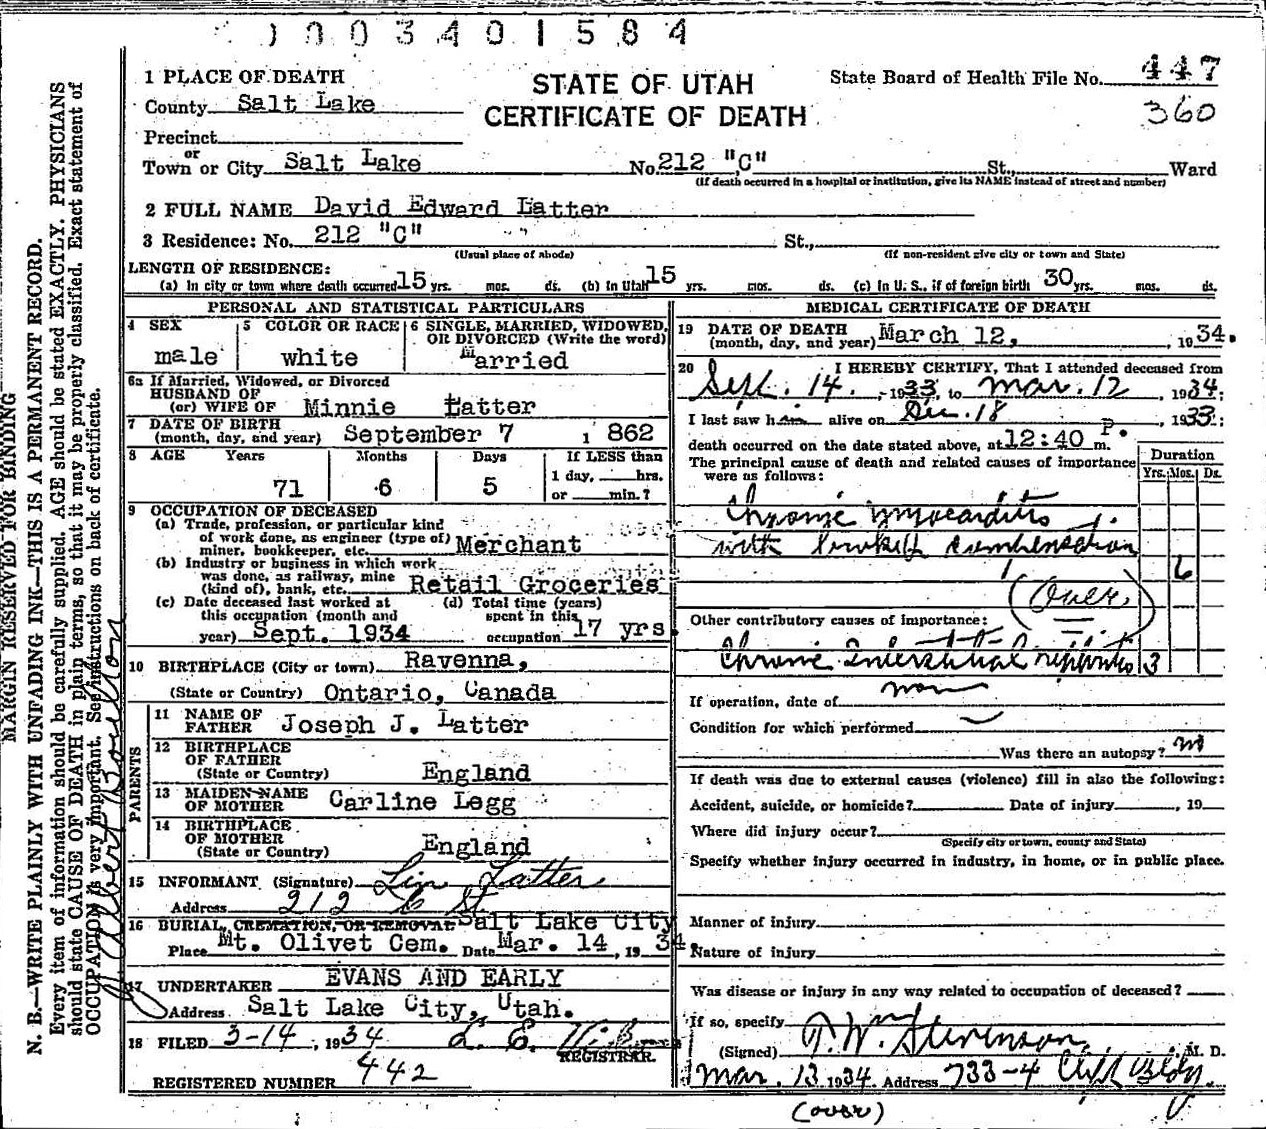 0003401584
STATE OF UTAH
CERTIFICATE OF DEATH
State Board of Health File No. 447
360
1 PLACE OF DEATH
County Salt Lake
Precinct
or
Town or City Salt Lake No. 212 "C" St., Ward
(If death occurred in a hospital or institution, give its NAME instead of street and number)
2 FULL NAME David Edward Latter
3 Residence: No. 212 "C" " St.,
(Usual place of abode) (If non-resident give city or town and State)
LENGTH OF RESIDENCE:
(a) In city or town where death occurred 15 yrs. mos. ds. (b) In Utah 15 yrs. mos. ds. (c) In U. S., if of foreign birth 30 yrs. mos. ds.
PERSONAL AND STATISTICAL PARTICULARS
4 SEX
male
5 COLOR OR RACE
white
6 SINGLE, MARRIED, WIDOWED,
OR DIVORCED (Write the word)
Married
6a If Married, Widowed, or Divorced
HUSBAND OF
(or) WIFE OF Minnie Latter
7 DATE OF BIRTH
(month, day, and year) September 7 1 862
8 AGE Years Months Days If LESS than
71 6 5 1 day, hrs.
or min.?
9 OCCUPATION OF DECEASED
(a) Trade, profession, or particular kind
of work done, as engineer (type of)
miner, bookkeeper, etc. Merchant
(b) Industry or business in which work
was done, as railway, mine
(kind of), bank, etc. Retail Groceries
(c) Date deceased last worked at
this occupation (month and
year) Sept. 1934
(d) Total time (years)
spent in this
occupation 17 yrs.
10 BIRTHPLACE (City or town) Ravenna,
(State or Country) Ontario, Canada
PARENTS
11 NAME OF
FATHER Joseph J. Latter
12 BIRTHPLACE
OF FATHER
(State or Country) England
13 MAIDEN NAME
OF MOTHER Carline Legg
14 BIRTHPLACE
OF MOTHER
(State or Country) England
15 INFORMANT (Signature) Lin Latter
Address 212 C St
16 BURIAL, CREMATION, OR REMOVAL Salt Lake City
Place Mt. Olivet Cem. Date Mar. 14, 19 34.
17 UNDERTAKER EVANS AND EARLY
Address Salt Lake City, Utah.
18 FILED 3-14, 1934
REGISTRAR.
REGISTERED NUMBER 442
MEDICAL CERTIFICATE OF DEATH
19 DATE OF DEATH
(month, day, and year) March 12, , 19 34.
20 I HEREBY CERTIFY, That I attended deceased from
Sept. 14, 1933, to Mar. 12, 1934;
I last saw him alive on Dec. 18, 1933;
death occurred on the date stated above, at 12:40 P. m.
The principal cause of death and related causes of importance
were as follows:
Duration
Yrs. Mos. Ds.
Chronic myocarditis
with broken compensation
6
(Over)
Other contributory causes of importance:
Chronic Interstitial nephritis 3
If operation, date of none
Condition for which performed
Was there an autopsy? no
If death was due to external causes (violence) fill in also the following:
Accident, suicide, or homicide? Date of injury , 19
Where did injury occur?
(Specify city or town, county and State)
Specify whether injury occurred in industry, in home, or in public place.
Manner of injury
Nature of injury
Was disease or injury in any way related to occupation of deceased?
If so, specify
(Signed) T. Wm Stevenson, M. D.
Mar. 13 1934. Address 733-4 Clift Bldg.
(over)
MARGIN RESERVED FOR BINDING
N. B.—WRITE PLAINLY WITH UNFADING INK—THIS IS A PERMANENT RECORD.
Every item of information should be carefully supplied. AGE should be stated EXACTLY. PHYSICIANS
should state CAUSE OF DEATH in plain terms, so that it may be properly classified. Exact statement of
OCCUPATION is very important. See instructions on back of certificate.